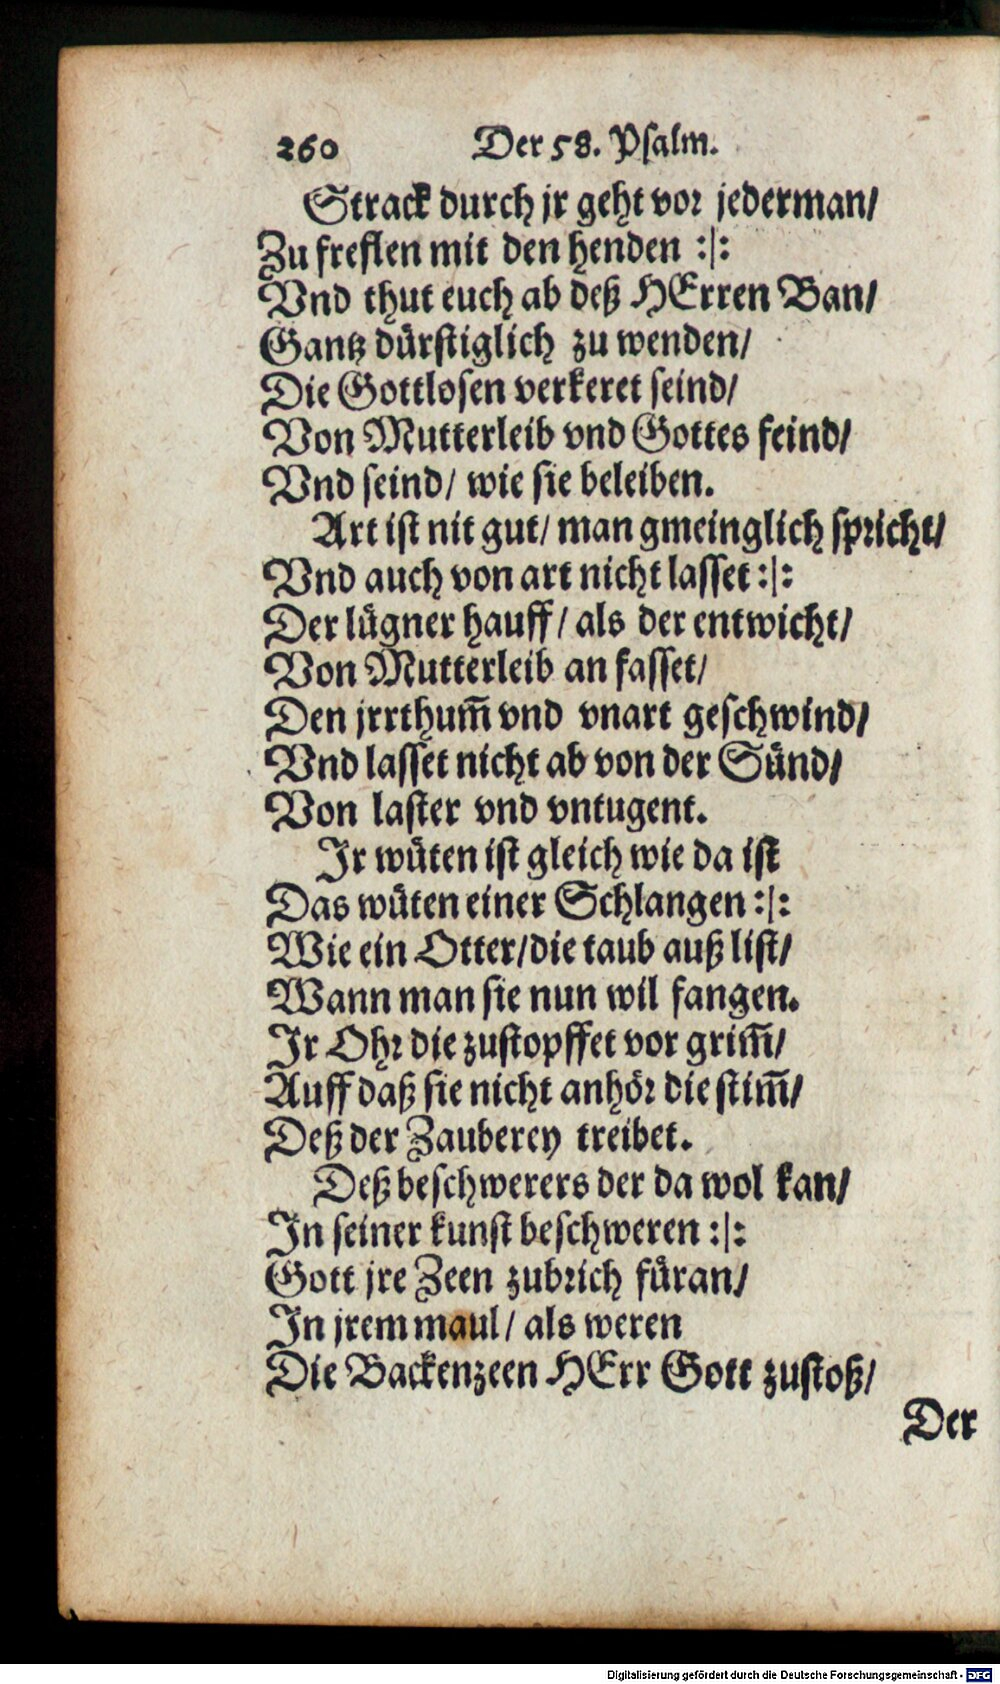 260 Der 58. Psalm.
Strack durch jr geht vor jederman/
Zu freflen mit den henden :|:
Vnd thut euch ab deß HErren Ban/
Gantz dürstiglich zu wenden/
Die Gottlosen verkeret seind/
Von Mutterleib vnd Gottes feind/
Vnd seind/ wie sie beleiben.
Art ist nit gut/ man gmeinglich spricht/
Vnd auch von art nicht lasset :|:
Der lügner hauff/ als der entwicht/
Von Mutterleib an fasset/
Den jrrthum̃ vnd vnart geschwind/
Vnd lasset nicht ab von der Sünd/
Von laster vnd vntugent.
Jr wüten ist gleich wie da ist
Das wüten einer Schlangen :|:
Wie ein Otter/die taub auß list/
Wann man sie nun wil fangen.
Jr Ohr die zustopffet vor grim̃/
Auff daß sie nicht anhör die stim̃/
Deß der Zauberey treibet.
Deß beschwerers der da wol kan/
Jn seiner kunst beschweren :|:
Gott jre Zeen zubrich füran/
Jn jrem maul/ als weren
Die Backenzeen HErr Gott zustoß/
Der
Digitalisierung gefördert durch die Deutsche Forschungsgemeinschaft - DFG